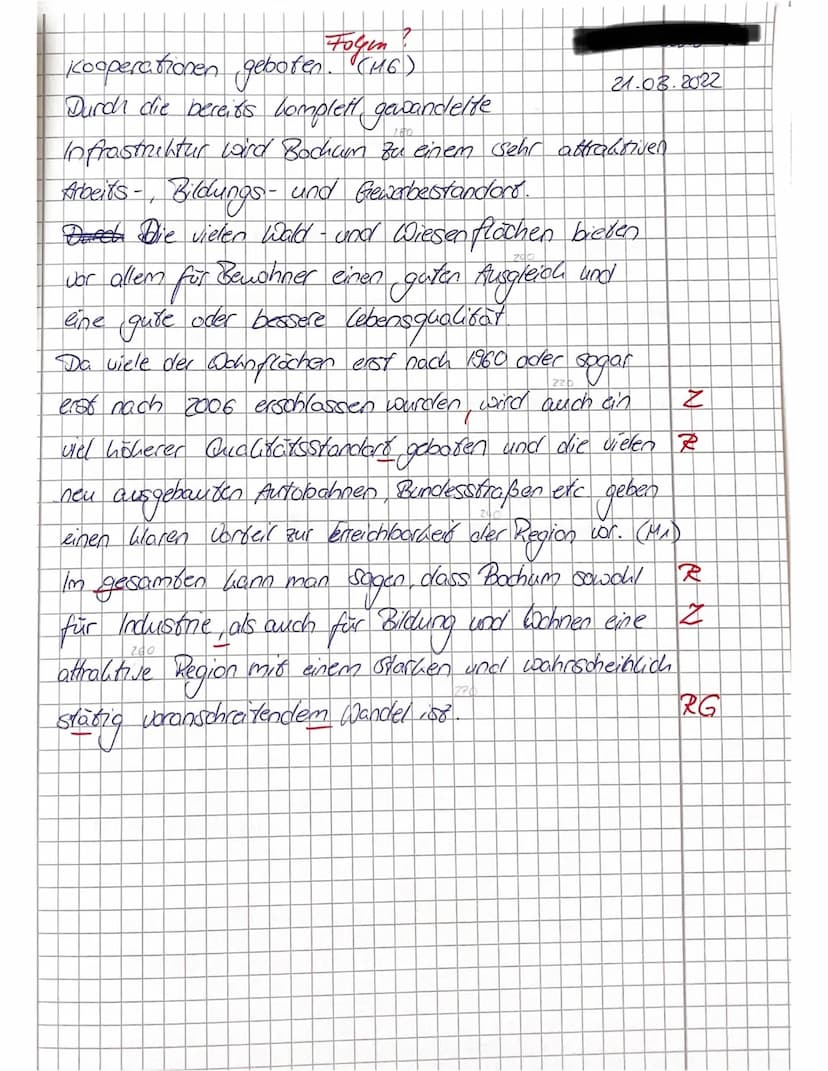 Folgen?
Kooperationen geboten. (M6)
21.03.2022
Durch die bereits komplett gewandelte
180
Infrastruktur wird Bochum zu einem sehr attraktiven
Arbeits-, Bildungs- und Gewerbestandort.
Durch Die vielen Wald- und Wiesenflächen bieten
200
vor allem für Bewohner einen guten Ausgleich und
eine gute oder bessere Lebensqualität
Da viele der Wohnflächen erst nach 1960 oder sogar
220
erst nach 2006 erschlossen wurden, wird auch ein Z
viel höherer Qualitätsstandart geboten und die vielen R
neu ausgebauten Autobahnen, Bundesstraßen etc geben
240
einen klaren Vorteil zur Erreichbarkeit der Region vor. (M1)
Im gesamten kann man sagen, dass Bochum sowohl R
für Industrie, als auch für Bildung und Wohnen eine Z
260
attraktive Region mit einem starken und wahrscheinlich
270
stätig voranschreitendem Wandel ist. RG